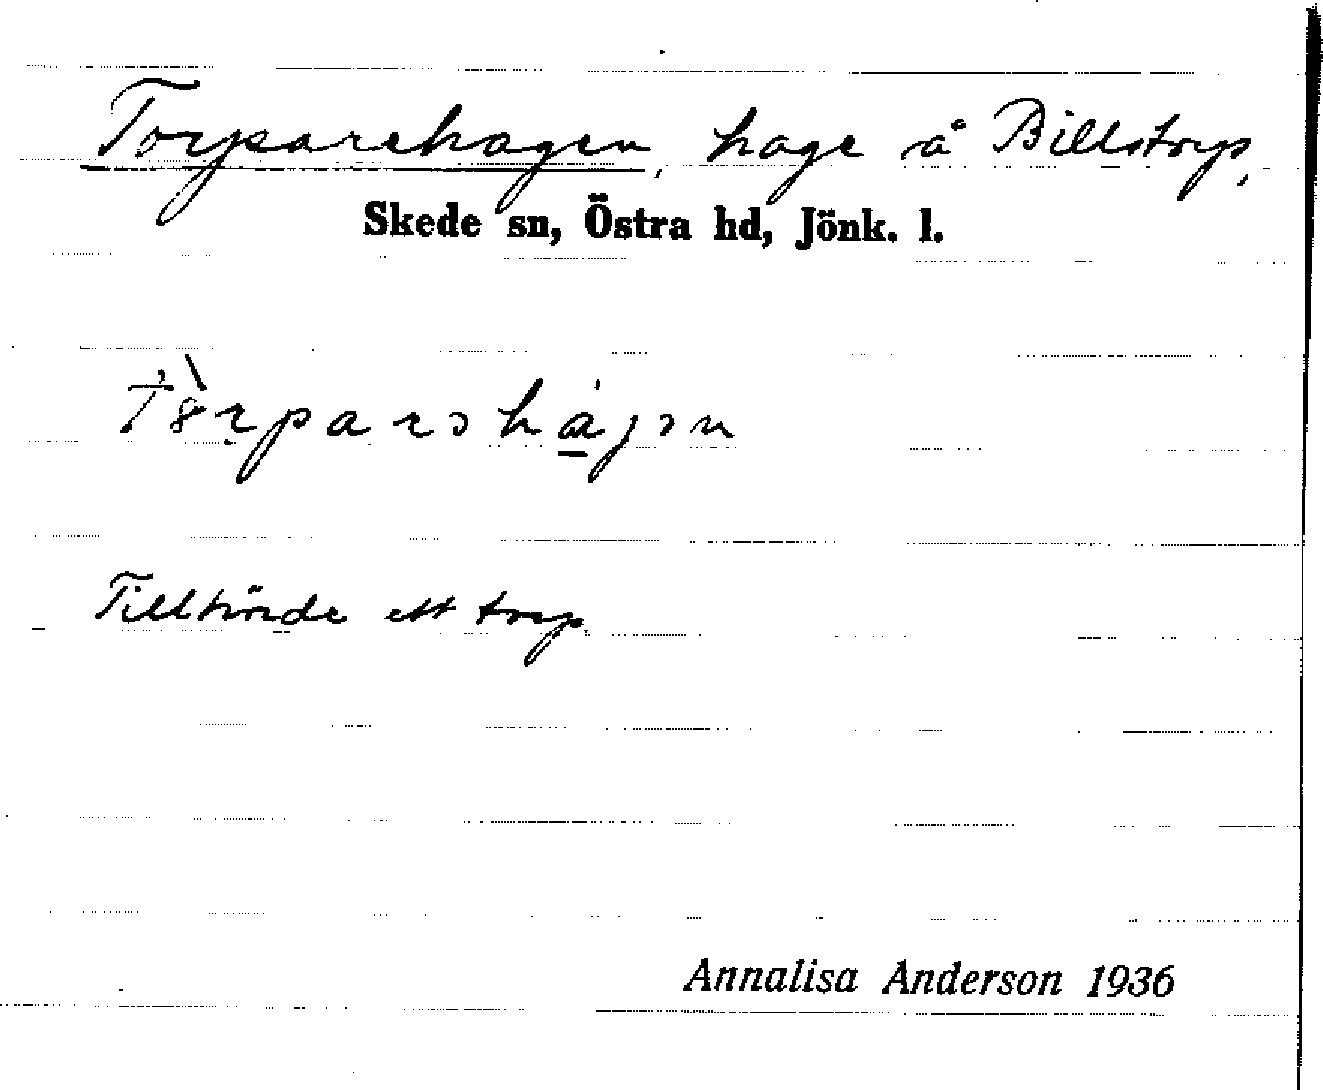 Torparehagen, hage å Billstorp,
Skede sn, Östra hd, Jönk. l.
Tillhörde ett torp
Annalisa Anderson 1936